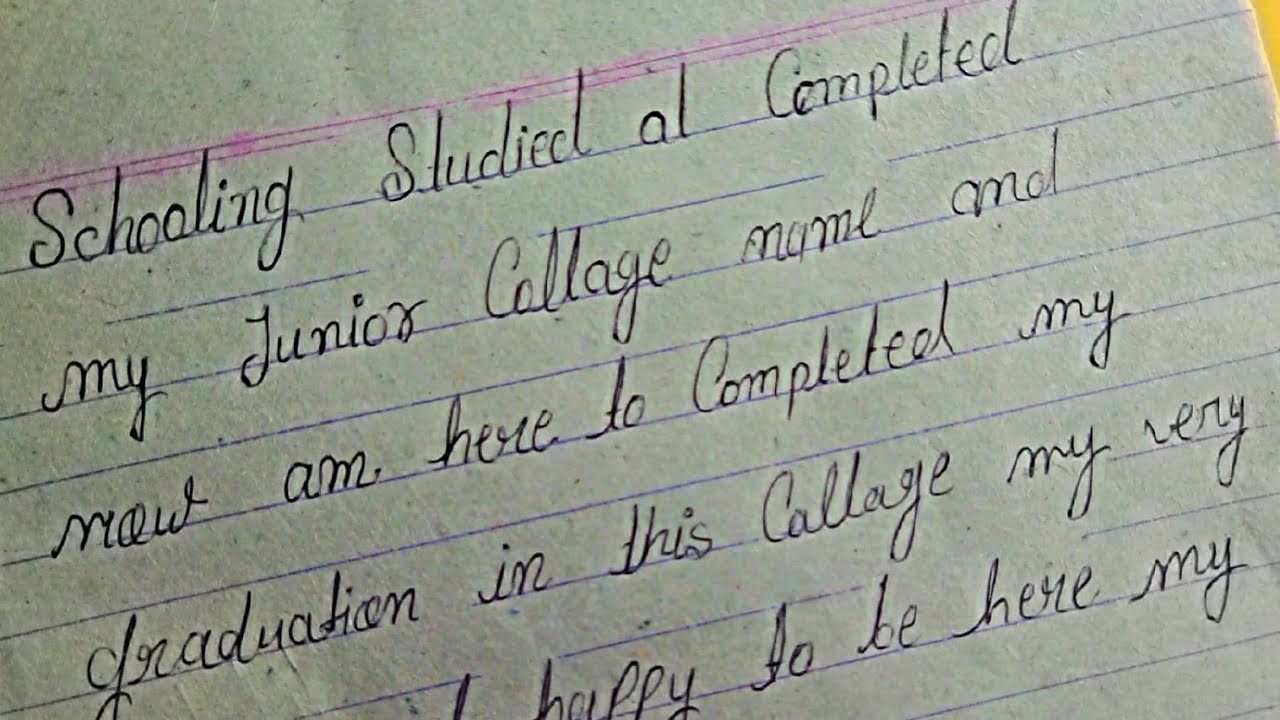 Schooling Studied at Completed
my Junior Collage name and
now am here to Completed my
graduation in this Collage my very
happy to be here my